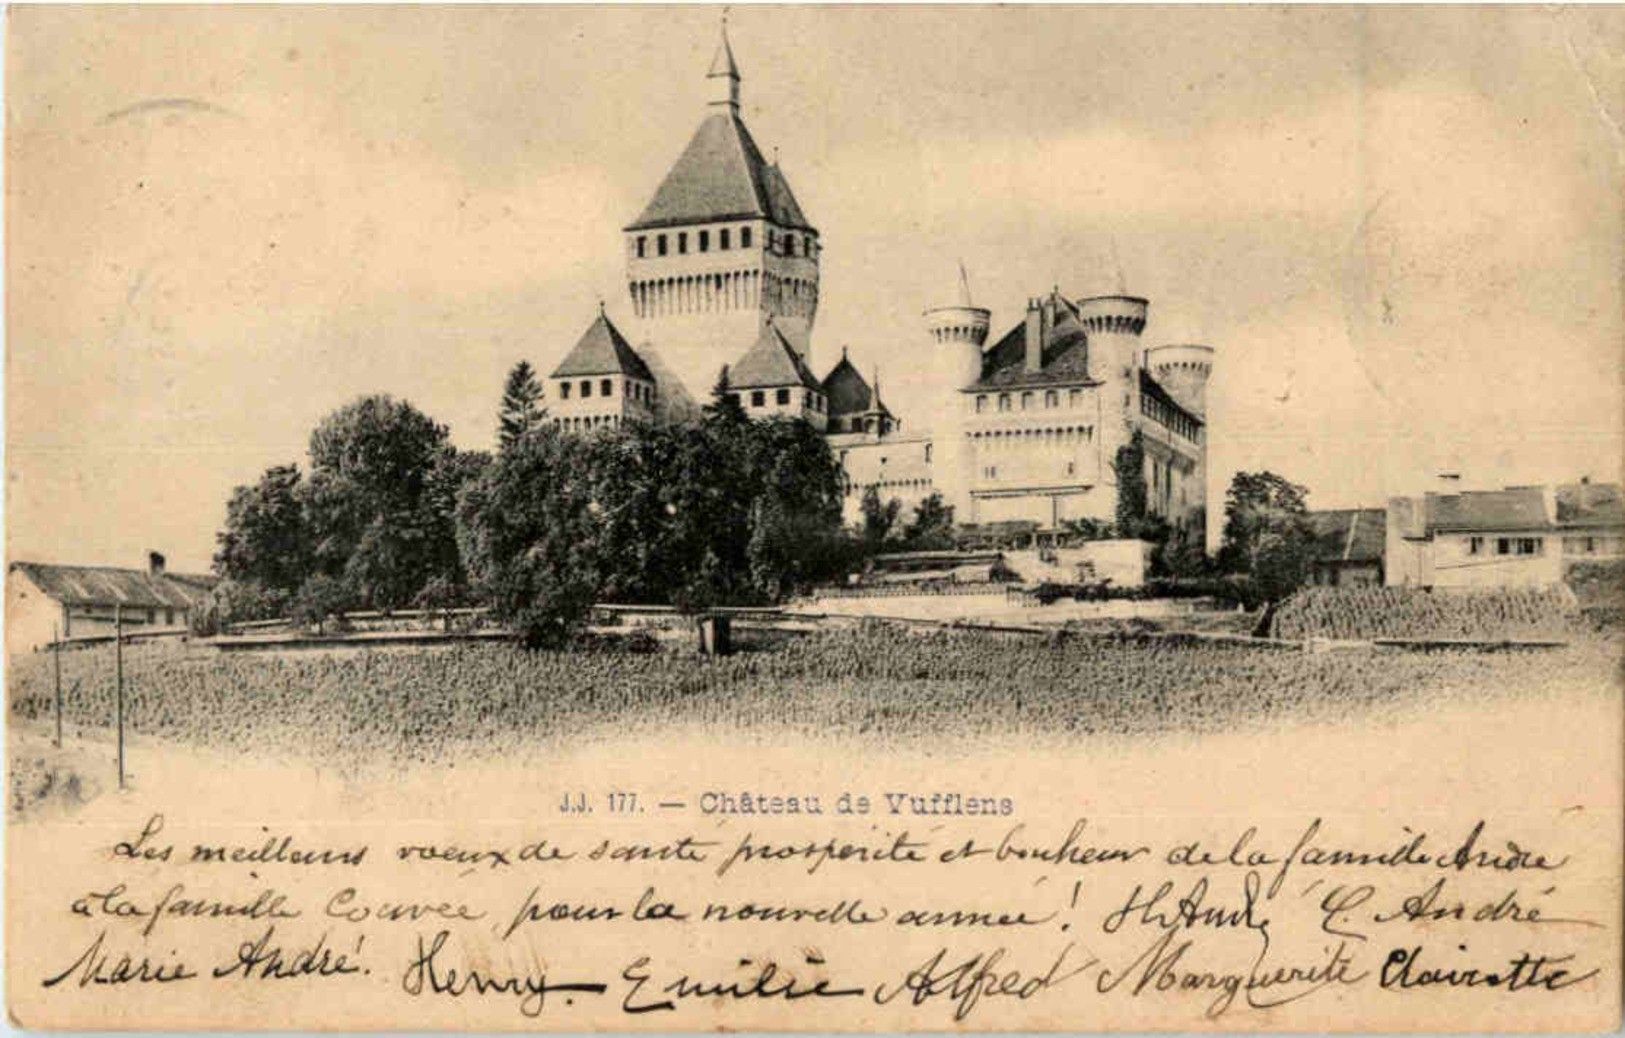 J.J. 177. — Château de Vufflens
Les meilleurs voeux de santé prospérité et bonheur de la famille André
à la famille Couvée, pour la nouvelle année! H. André C. André
Marie André. Henry. Emilie Alfred Marguerite Clairette